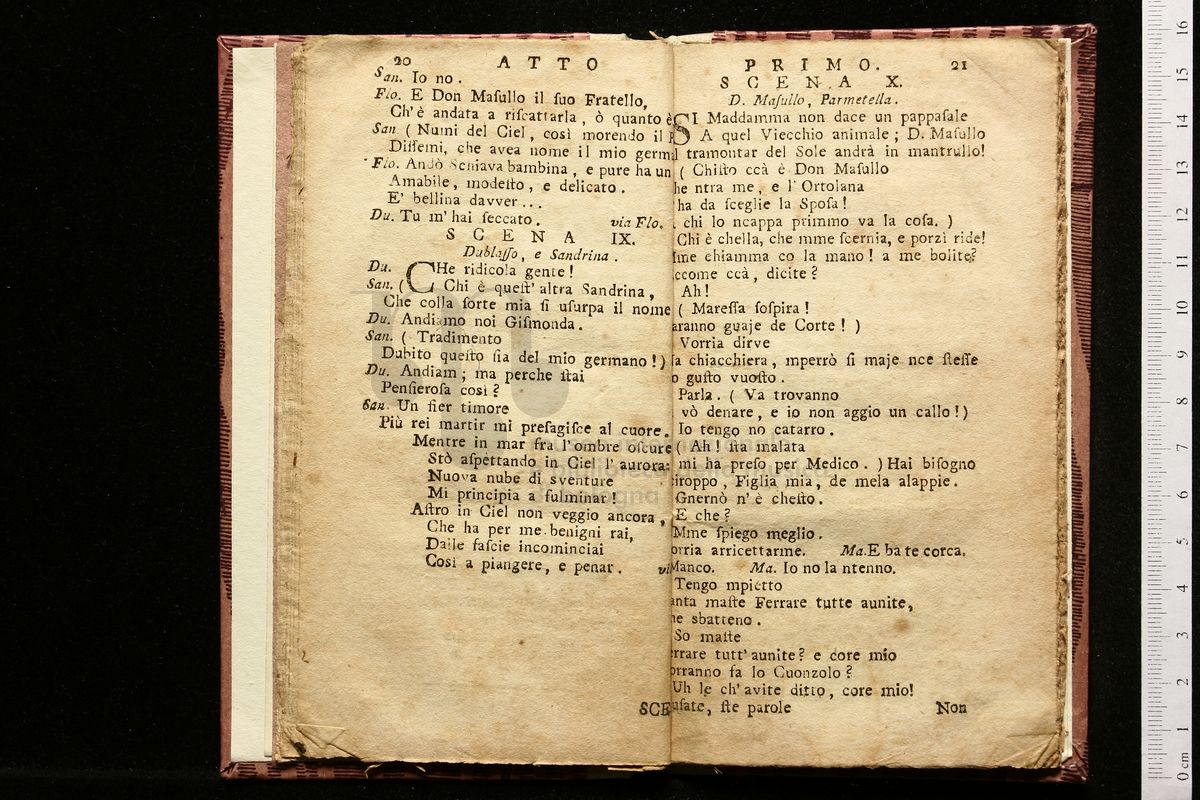 20 ATTO
San. Io no.
Flo. E Don Maſullo il ſuo Fratello,
Ch'è andata a riſcattarla, ò quanto è
San. ( Numi del Ciel, così morendo il
Diſſemi, che avea nome il mio germ
Flo. Andò Schiava bambina, e pure ha un
Amabile, modeſto, e delicato.
E' bellina davver...
Du. Tu m'hai ſeccato. via Flo.
SCENA IX.
Dublaſſo, e Sandrina.
Du. CHe ridicola gente!
San. ( Chi è queſt' altra Sandrina,
Che colla ſorte mia ſi uſurpa il nome
Du. Andiamo noi Giſmonda.
San. ( Tradimento
Dubito queſto ſia del mio germano!)
Du. Andiam; ma perche ſtai
Penſieroſa così?
San. Un fier timore
Più rei martir mi preſagiſce al cuore.
Mentre in mar fra l'ombre oſcure
Stò aſpettando in Ciel l'aurora:
Nuova nube di sventure
Mi principia a fulminar!
Aſtro in Ciel non veggio ancora,
Che ha per me benigni rai,
Dalle faſcie incominciai
Così a piangere, e penar. vi
SCE
PRIMO. 21
SCENA X.
D. Maſullo, Parmetella.
SI Maddamma non dace un pappaſale
A quel Viecchio animale; D. Maſullo
l tramontar del Sole andrà in mantrullo!
( Chiſto ccà è Don Maſullo
he ntra me, e l'Ortolana
ha da ſceglie la Spoſa!
chi lo ncappa primmo va la coſa. )
Chi è chella, che mme ſcernia, e porzì ride!
me chiamma co la mano! a me bolite?
ccome ccà, dicite?
Ah!
( Mareſſa ſoſpira!
aranno guaje de Corte! )
Vorria dirve
a chiacchiera, mperrò ſi maje nce ſteſſe
o guſto vuoſto.
Parla. ( Va trovanno
vò denare, e io non aggio un callo!)
Io tengo no catarro.
( Ah! ſta malata
mi ha preſo per Medico. ) Hai biſogno
iroppo, Figlia mia, de mela alappie.
Gnernò n'è cheſto.
E che?
Mme ſpiego meglio.
orria arricettarme. Ma. E ba te corca.
Manco. Ma. Io no la ntenno.
Tengo mpietto
anta maſte Ferrare tutte aunite,
ne sbatteno.
So maſte
errare tutt'aunite? e core mio
orranno fa lo Cuonzolo?
Uh le ch'avite ditto, core mio!
uſate, ſte parole
Non